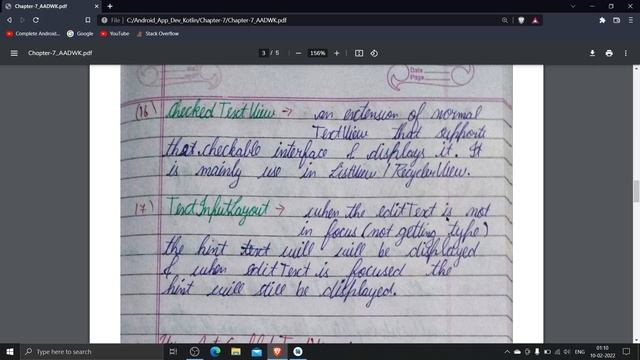 Chapter-7_AADWK.pdf
File | C:/Android_App_Dev_Kotlin/Chapter-7/Chapter-7_AADWK.pdf
Complete Android... Google YouTube Stack Overflow
Chapter-7_AADWK.pdf 3 / 5 156%
Date
Page
(16) Checked TextView → an extension of normal
TextView that supports
that checkable interface & displays it. It
is mainly use in ListView / RecyclerView.
17) TextInputLayout → when the editText is not
in focus (not getting type)
the hint text will will be displayed
& when editText is focused the
hint will still be displayed.
Type here to search
ENG
01:10
10-02-2022